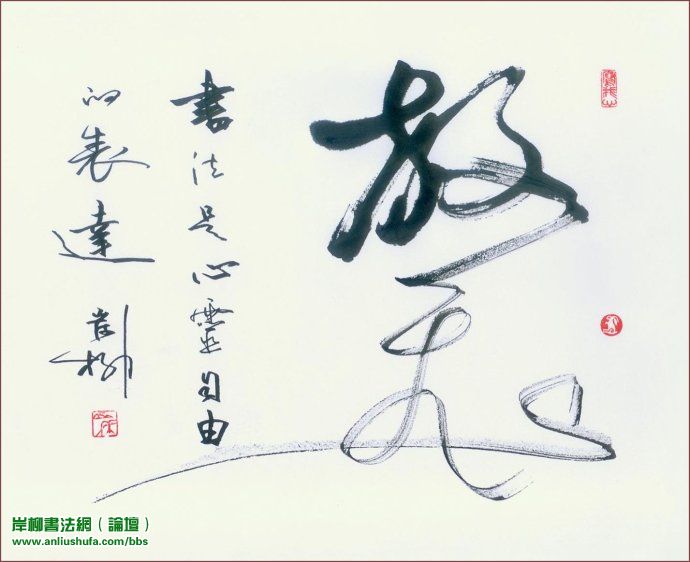 放飛
書法是心靈自由
的表達
岸柳
岸柳書法網（論壇）
www.anliushufa.com/bbs